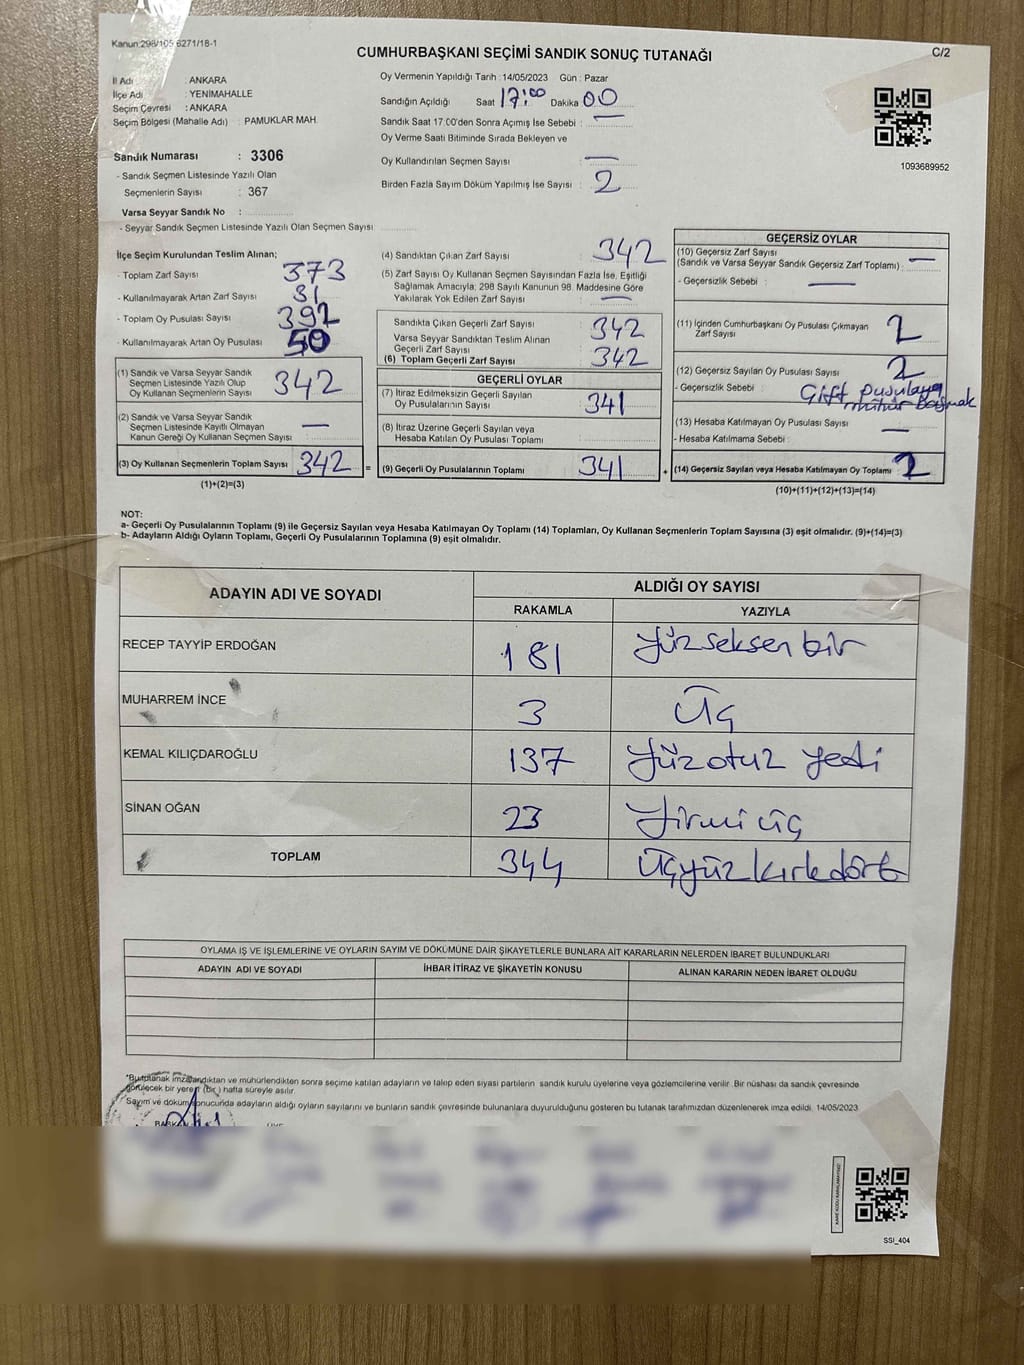 Kanun:298/105 6271/18-1
C/2
CUMHURBAŞKANI SEÇİMİ SANDIK SONUÇ TUTANAĞI
İl Adı : ANKARA
İlçe Adı : YENİMAHALLE
Seçim Çevresi : ANKARA
Seçim Bölgesi (Mahalle Adı) : PAMUKLAR MAH.
Sandık Numarası : 3306
- Sandık Seçmen Listesinde Yazılı Olan
Seçmenlerin Sayısı : 367
Varsa Seyyar Sandık No :
- Seyyar Sandık Seçmen Listesinde Yazılı Olan Seçmen Sayısı
Oy Vermenin Yapıldığı Tarih :14/05/2023 Gün : Pazar
Sandığın Açıldığı Saat 17:00 Dakika 00
Sandık Saat 17:00'den Sonra Açımış İse Sebebi : —
Oy Verme Saati Bitiminde Sırada Bekleyen ve
Oy Kullandırılan Seçmen Sayısı : —
Birden Fazla Sayım Döküm Yapılmış İse Sayısı : 2
1093689952
İlçe Seçim Kurulundan Teslim Alınan;
- Toplam Zarf Sayısı 373
- Kullanılmayarak Artan Zarf Sayısı 31
- Toplam Oy Pusulası Sayısı 392
- Kullanılmayarak Artan Oy Pusulası 50
(1) Sandık ve Varsa Seyyar Sandık
Seçmen Listesinde Yazılı Olup
Oy Kullanan Seçmenlerin Sayısı 342
(2) Sandık ve Varsa Seyyar Sandık
Seçmen Listesinde Kayıtlı Olmayan
Kanun Gereği Oy Kullanan Seçmen Sayısı : —
(3) Oy Kullanan Seçmenlerin Toplam Sayısı 342 =
(1)+(2)=(3)
(4) Sandıktan Çıkan Zarf Sayısı : 342
(5) Zarf Sayısı Oy Kullanan Seçmen Sayısından Fazla İse, Eşitliği
Sağlamak Amacıyla; 298 Sayılı Kanunun 98. Maddesine Göre
Yakılarak Yok Edilen Zarf Sayısı : —
Sandıkta Çıkan Geçerli Zarf Sayısı : 342
Varsa Seyyar Sandıktan Teslim Alınan
Geçerli Zarf Sayısı :
(6) Toplam Geçerli Zarf Sayısı : 342
GEÇERLİ OYLAR
(7) İtiraz Edilmeksizin Geçerli Sayılan
Oy Pusulalarının Sayısı : 341
(8) İtiraz Üzerine Geçerli Sayılan veya
Hesaba Katılan Oy Pusulası Toplamı :
(9) Geçerli Oy Pusulalarının Toplamı : 341 +
GEÇERSİZ OYLAR
(10) Geçersiz Zarf Sayısı
(Sandık ve Varsa Seyyar Sandık Geçersiz Zarf Toplamı) : —
- Geçersizlik Sebebi : —
(11) İçinden Cumhurbaşkanı Oy Pusulası Çıkmayan
Zarf Sayısı :
(12) Geçersiz Sayılan Oy Pusulası Sayısı : 2
- Geçersizlik Sebebi : Çift pusulaya
mühür basmak
(13) Hesaba Katılmayan Oy Pusulası Sayısı : —
- Hesaba Katılmama Sebebi :
(14) Geçersiz Sayılan veya Hesaba Katılmayan Oy Toplamı :
(10)+(11)+(12)+(13)=(14)
NOT:
a- Geçerli Oy Pusulalarının Toplamı (9) ile Geçersiz Sayılan veya Hesaba Katılmayan Oy Toplamı (14) Toplamları, Oy Kullanan Seçmenlerin Toplam Sayısına (3) eşit olmalıdır. (9)+(14)=(3)
b- Adayların Aldığı Oyların Toplamı, Geçerli Oy Pusulalarının Toplamına (9) eşit olmalıdır.
ADAYIN ADI VE SOYADI
ALDIĞI OY SAYISI
RAKAMLA YAZIYLA
RECEP TAYYİP ERDOĞAN 181 Yüzseksen bir
MUHARREM İNCE 3 Üç
KEMAL KILIÇDAROĞLU 137 Yüzotuz yedi
SİNAN OĞAN 23 Yirmi üç
TOPLAM 344 Üçyüzkırkdört
OYLAMA İŞ VE İŞLEMLERİNE VE OYLARIN SAYIM VE DÖKÜMÜNE DAİR ŞİKAYETLERLE BUNLARA AİT KARARLARIN NELERDEN İBARET BULUNDUKLARI
ADAYIN ADI VE SOYADI İHBAR İTİRAZ VE ŞİKAYETİN KONUSU ALINAN KARARIN NEDEN İBARET OLDUĞU
*Bu tutanak imzalandıktan ve mühürlendikten sonra seçime katılan adayların ve talep eden siyasi partilerin sandık kurulu üyelerine veya gözlemcilerine verilir. Bir nüshası da sandık çevresinde
görülecek bir yere (bir) hafta süreyle asılır.
Sayım ve döküm sonucunda adayların aldığı oyların sayılarını ve bunların sandık çevresinde bulunanlara duyurulduğunu gösteren bu tutanak tarafımızdan düzenlenerek imza edildi. 14/05/2023
SSI_404